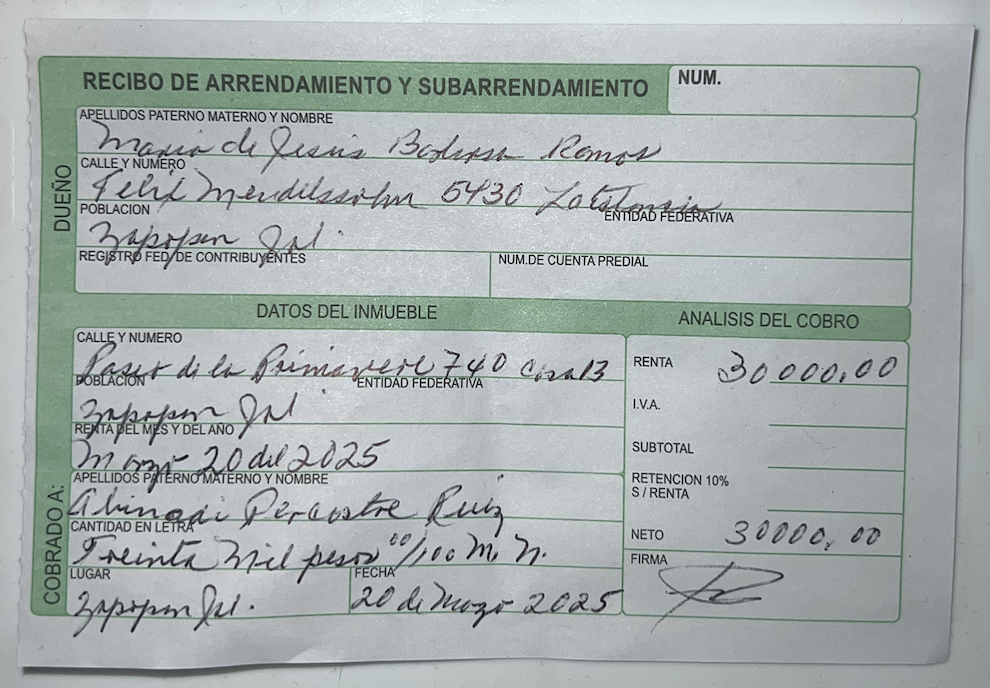 RECIBO DE ARRENDAMIENTO Y SUBARRENDAMIENTO
NUM.
DUEÑO
APELLIDOS PATERNO MATERNO Y NOMBRE
Maria de Jesus Ramos
CALLE Y NUMERO
Felix Mendelssohn 5430 La Estancia
POBLACION
ENTIDAD FEDERATIVA
Zapopan Jal.
REGISTRO FED. DE CONTRIBUYENTES
NUM.DE CUENTA PREDIAL
DATOS DEL INMUEBLE
CALLE Y NUMERO
Paseo de la Primavera 740 Casa 13
POBLACION
ENTIDAD FEDERATIVA
Zapopan Jal
RENTA DEL MES Y DEL AÑO
Marzo 20 del 2025
COBRADO A:
APELLIDOS PATERNO MATERNO Y NOMBRE
Ruiz
CANTIDAD EN LETRA
Treinta Mil pesos 00/100 M.N.
LUGAR
Zapopan Jal.
FECHA
20 de Marzo 2025
ANALISIS DEL COBRO
RENTA 30000.00
I.V.A.
SUBTOTAL
RETENCION 10%
S / RENTA
NETO 30000.00
FIRMA